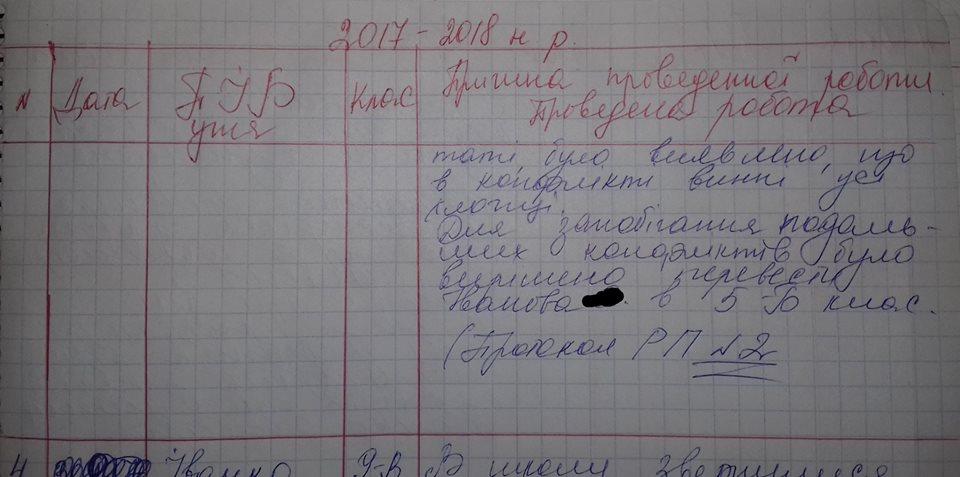 2017-2018 н. р.
N Дата П І Б учня Клас Причина проведенної роботи.
Проведена робота
таті було виявлено, що
в конфлікті винні усі
хлопці.
Для запобігання подаль-
ших конфліктів було
вирішено перевести
Іванова в 5-Б клас.
(Протокол РП №2
4 Іванко 9-В В школи звернулися